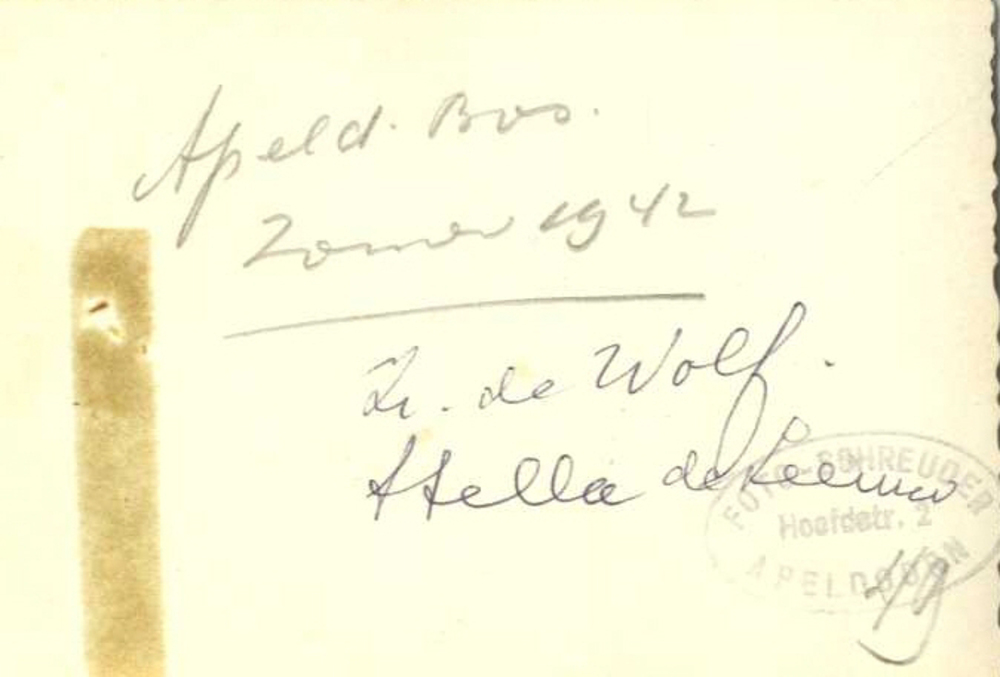 Apeld. Bos.
Zomer 1942
Zr. de Wolf.
Stella de Leeuw
FOTO-SCHREUDER
Hoofdstr. 2
APELDOORN